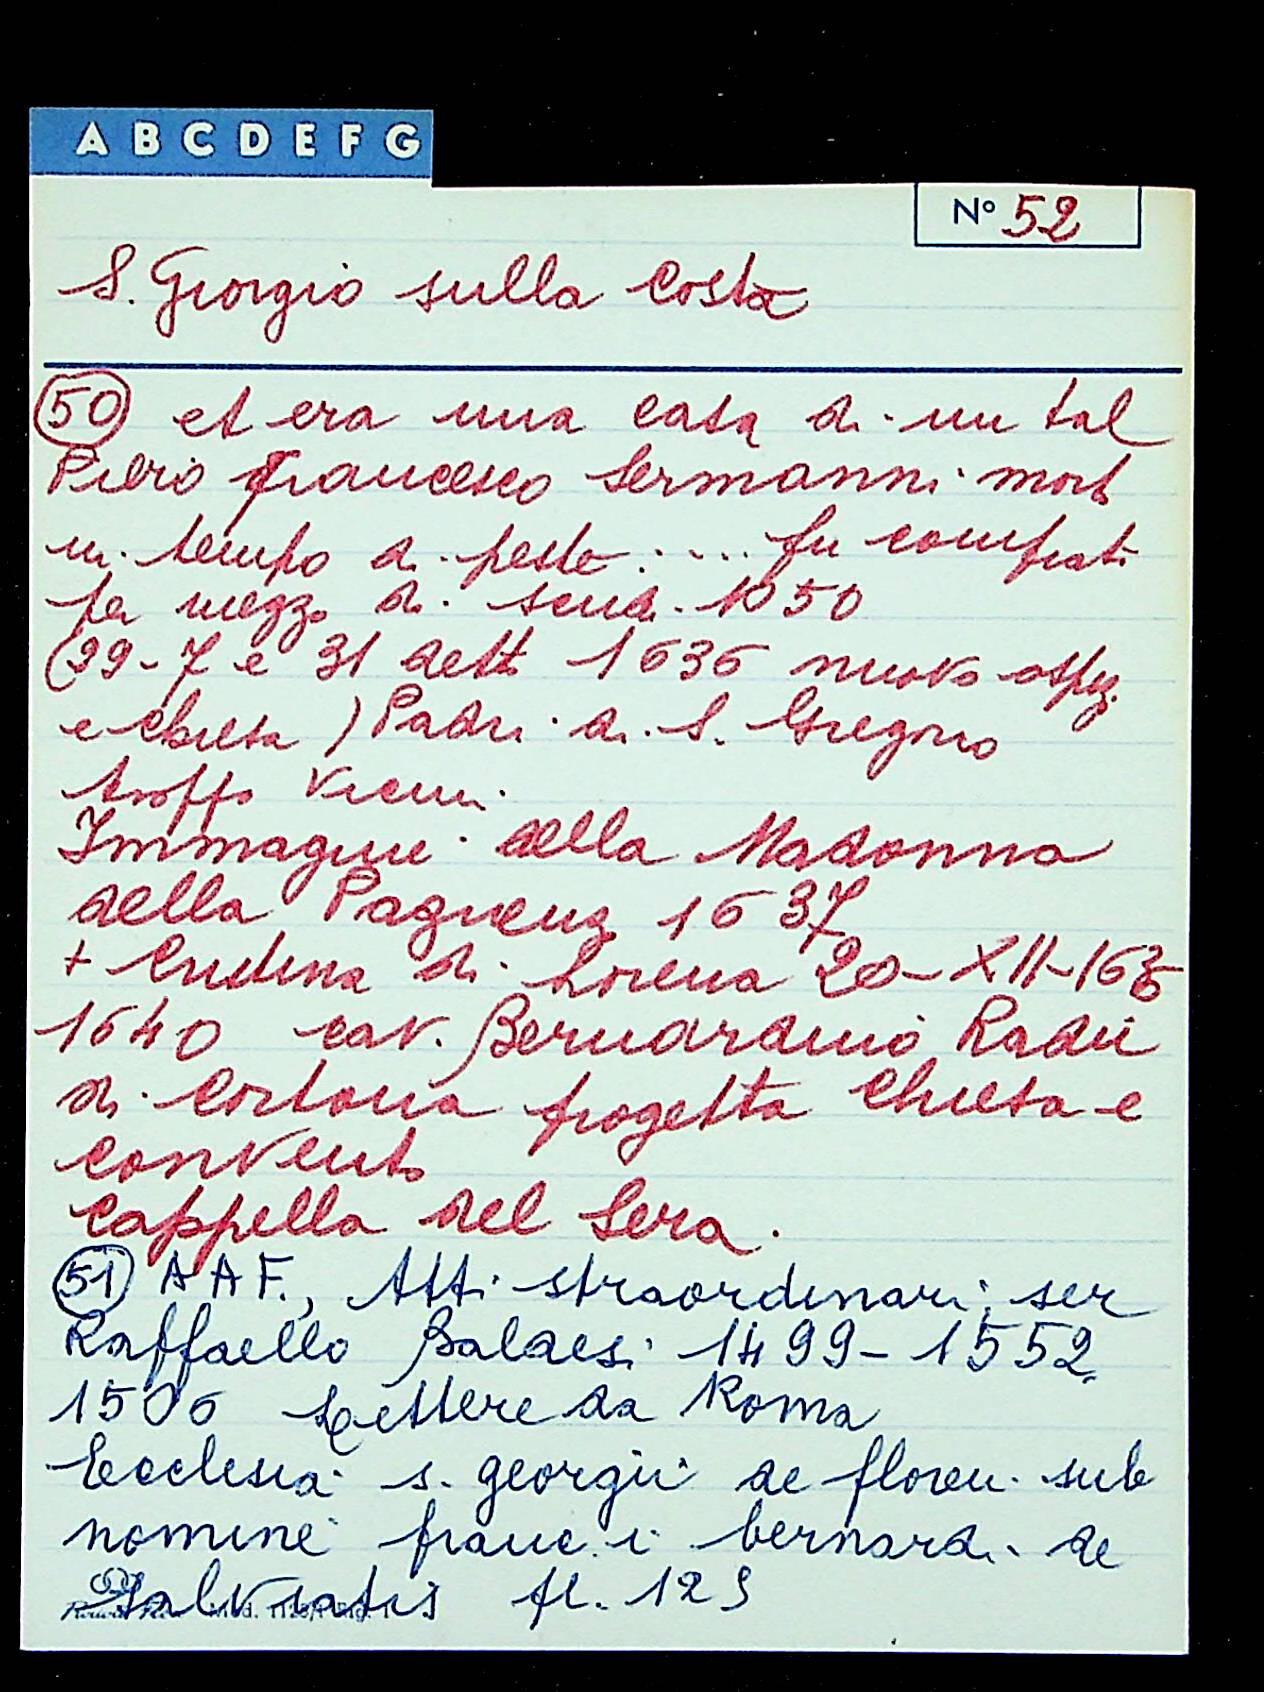 A B C D E F G
N° 52
S. Giorgio sulla Costa
(50) et era una casa di un tal
Piero Francesco Sermanni mort
in tempo di peste .... fu comprat
per mezzo di scudi 1050
(29-7 e 31 dett 1636 nuovo ospiz.
e Chiesa) Padri di S. Gregorio
troppo vicini.
Immagine della Madonna
della Pagnena 1637
+ Cristina di Lorena 20-XII-1636
1640 cav. Bernardino Radii
di Cortona progetta Chiesa e
convento
Cappella del Sera.
(51) A A F., Atti straordinari, ser
Raffaello Baldesi 1499-1552
1506 Lettere da Roma
Ecclesia s. georgii de floren. sub
nomine franc. i bernardi de
Salviatis fl. 123